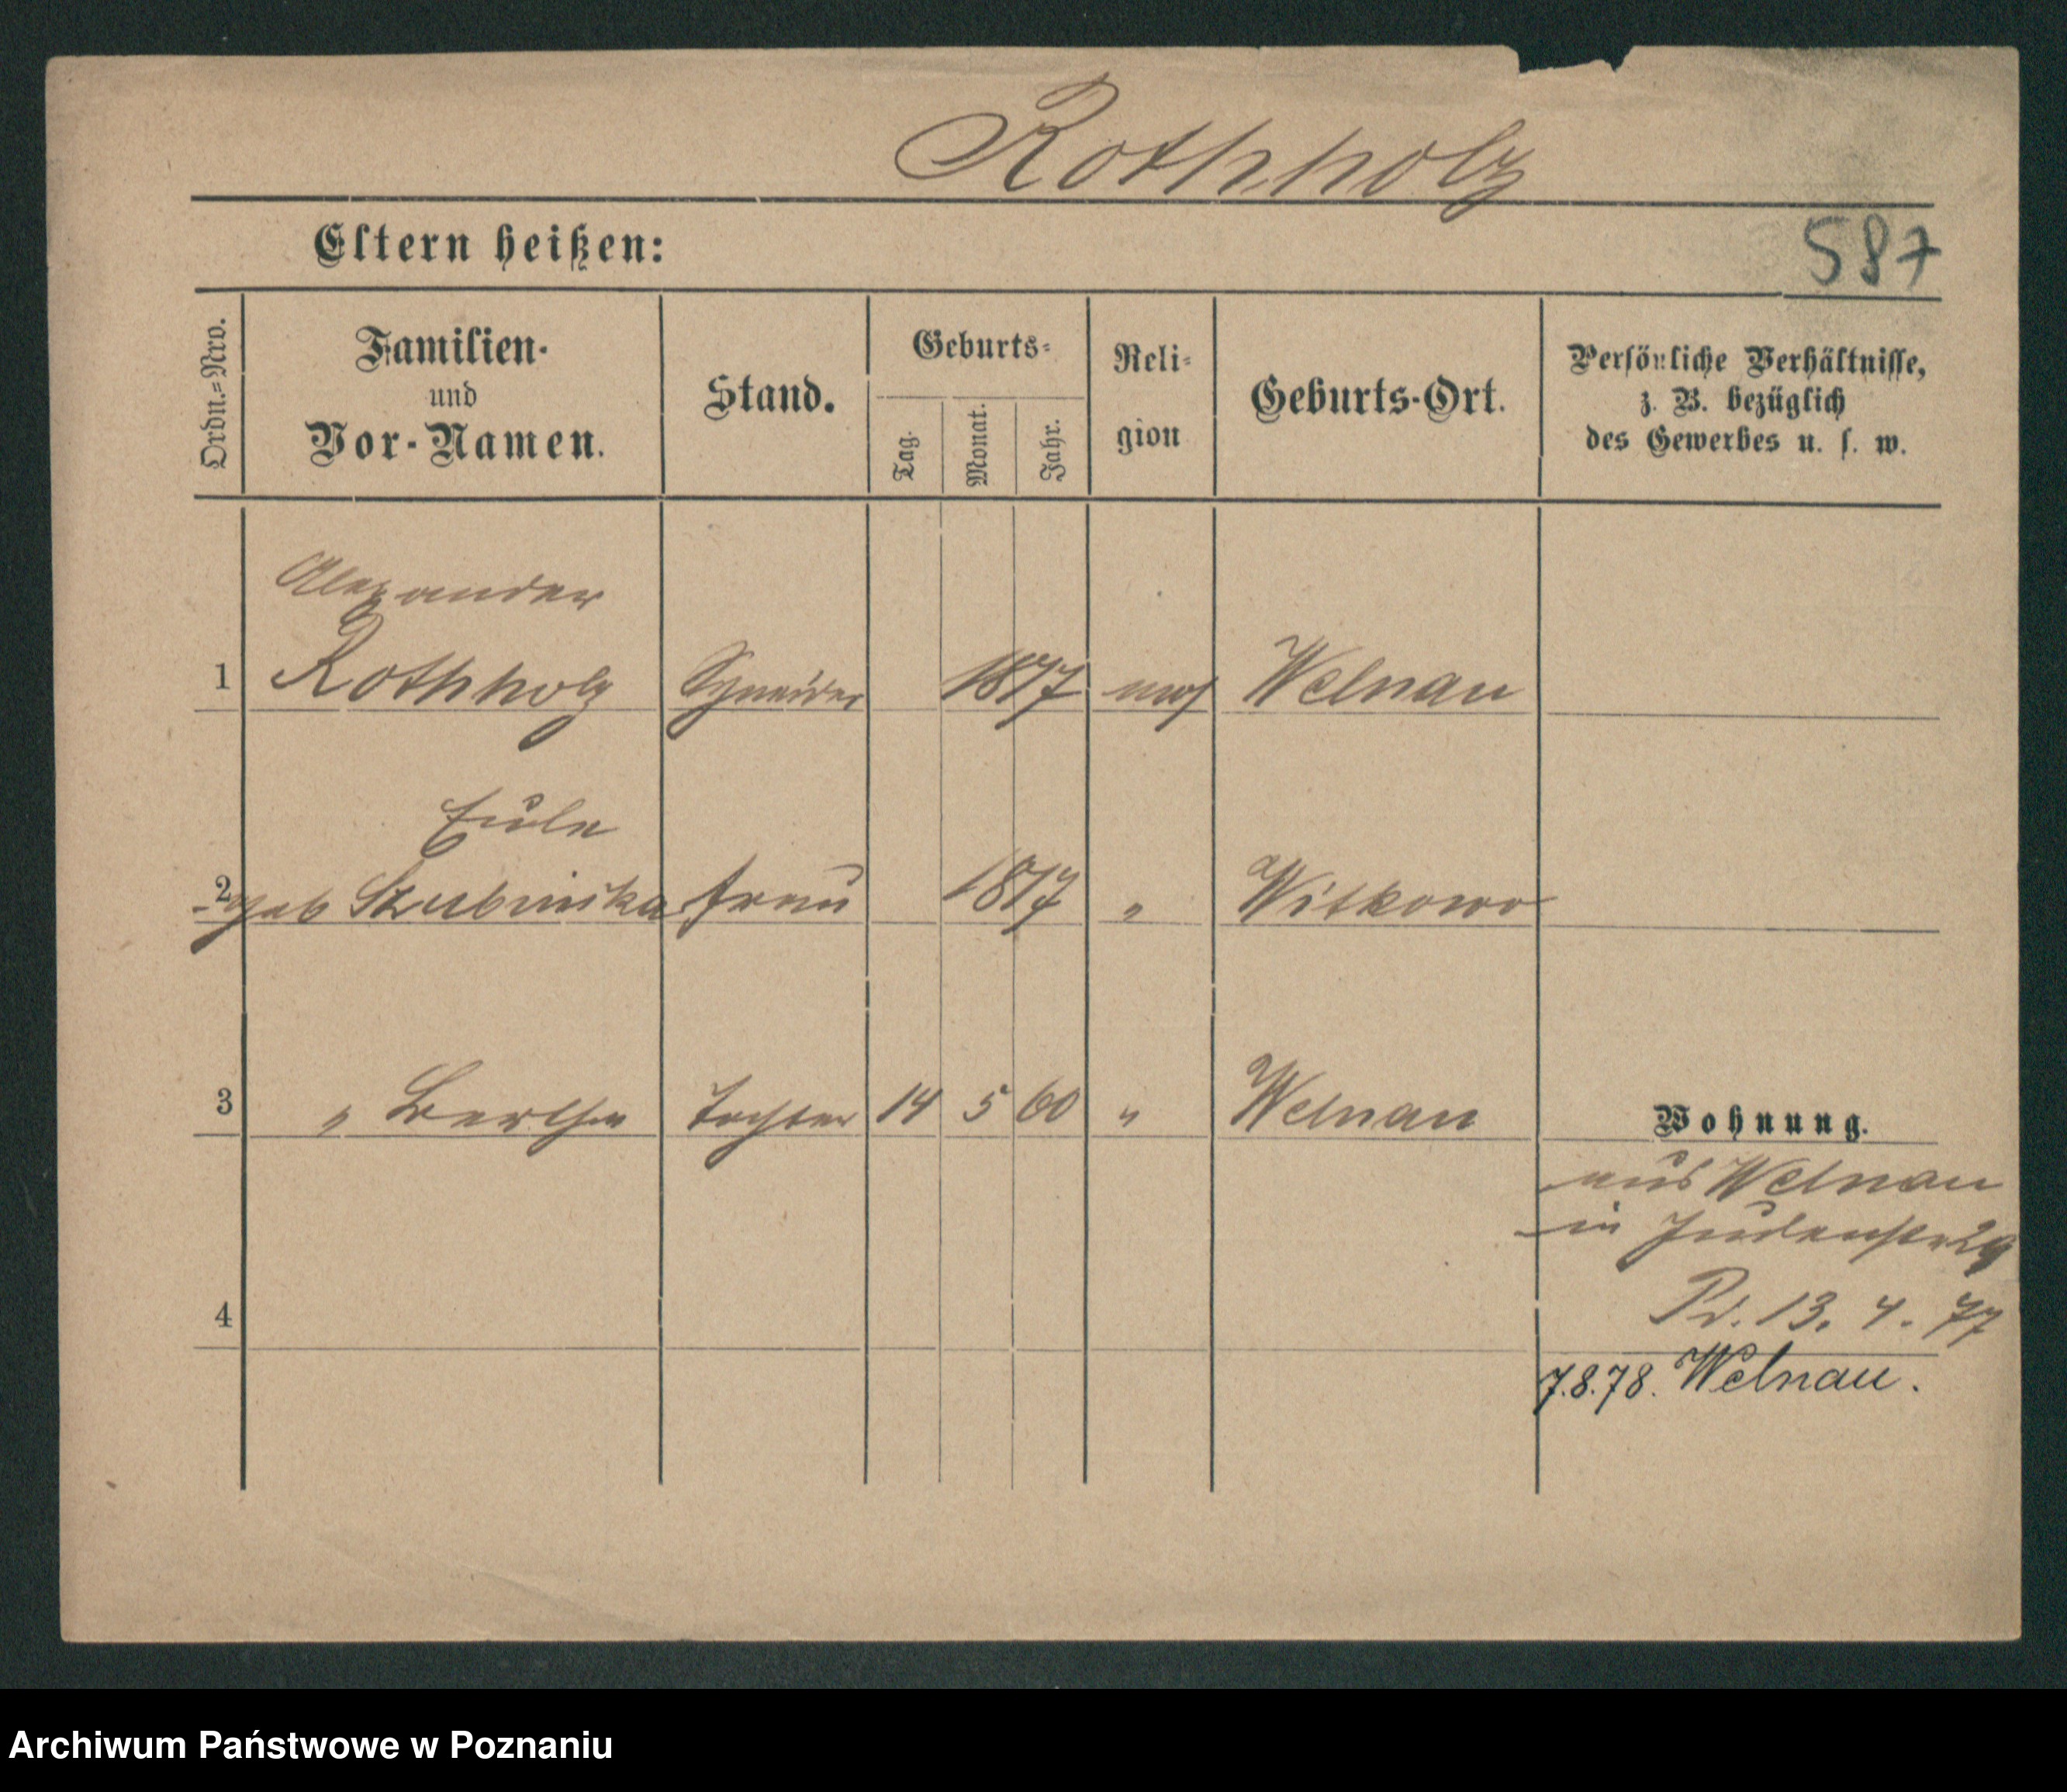 Rothholz
Eltern heißen:
587
Ordn.=Nro.
Familien-
und
Vor-Namen.
Stand.
Geburts=
Tag.
Monat.
Jahr.
Reli=
gion
Geburts-Ort.
Persönliche Verhältnisse,
z. B. bezüglich
des Gewerbes u. s. w.
Alexander
1 Rothholz Schneider 1817 mos Welnau
Eule
2 geb Szubinska Frau 1817 " Witkowo
3 " Bertha Tochter 14 5 60 " Welnau
Wohnung.
aus Welnau
in Judenstr 29
13. 4. 77
4
7.8.78. Welnau.
Archiwum Państwowe w Poznaniu